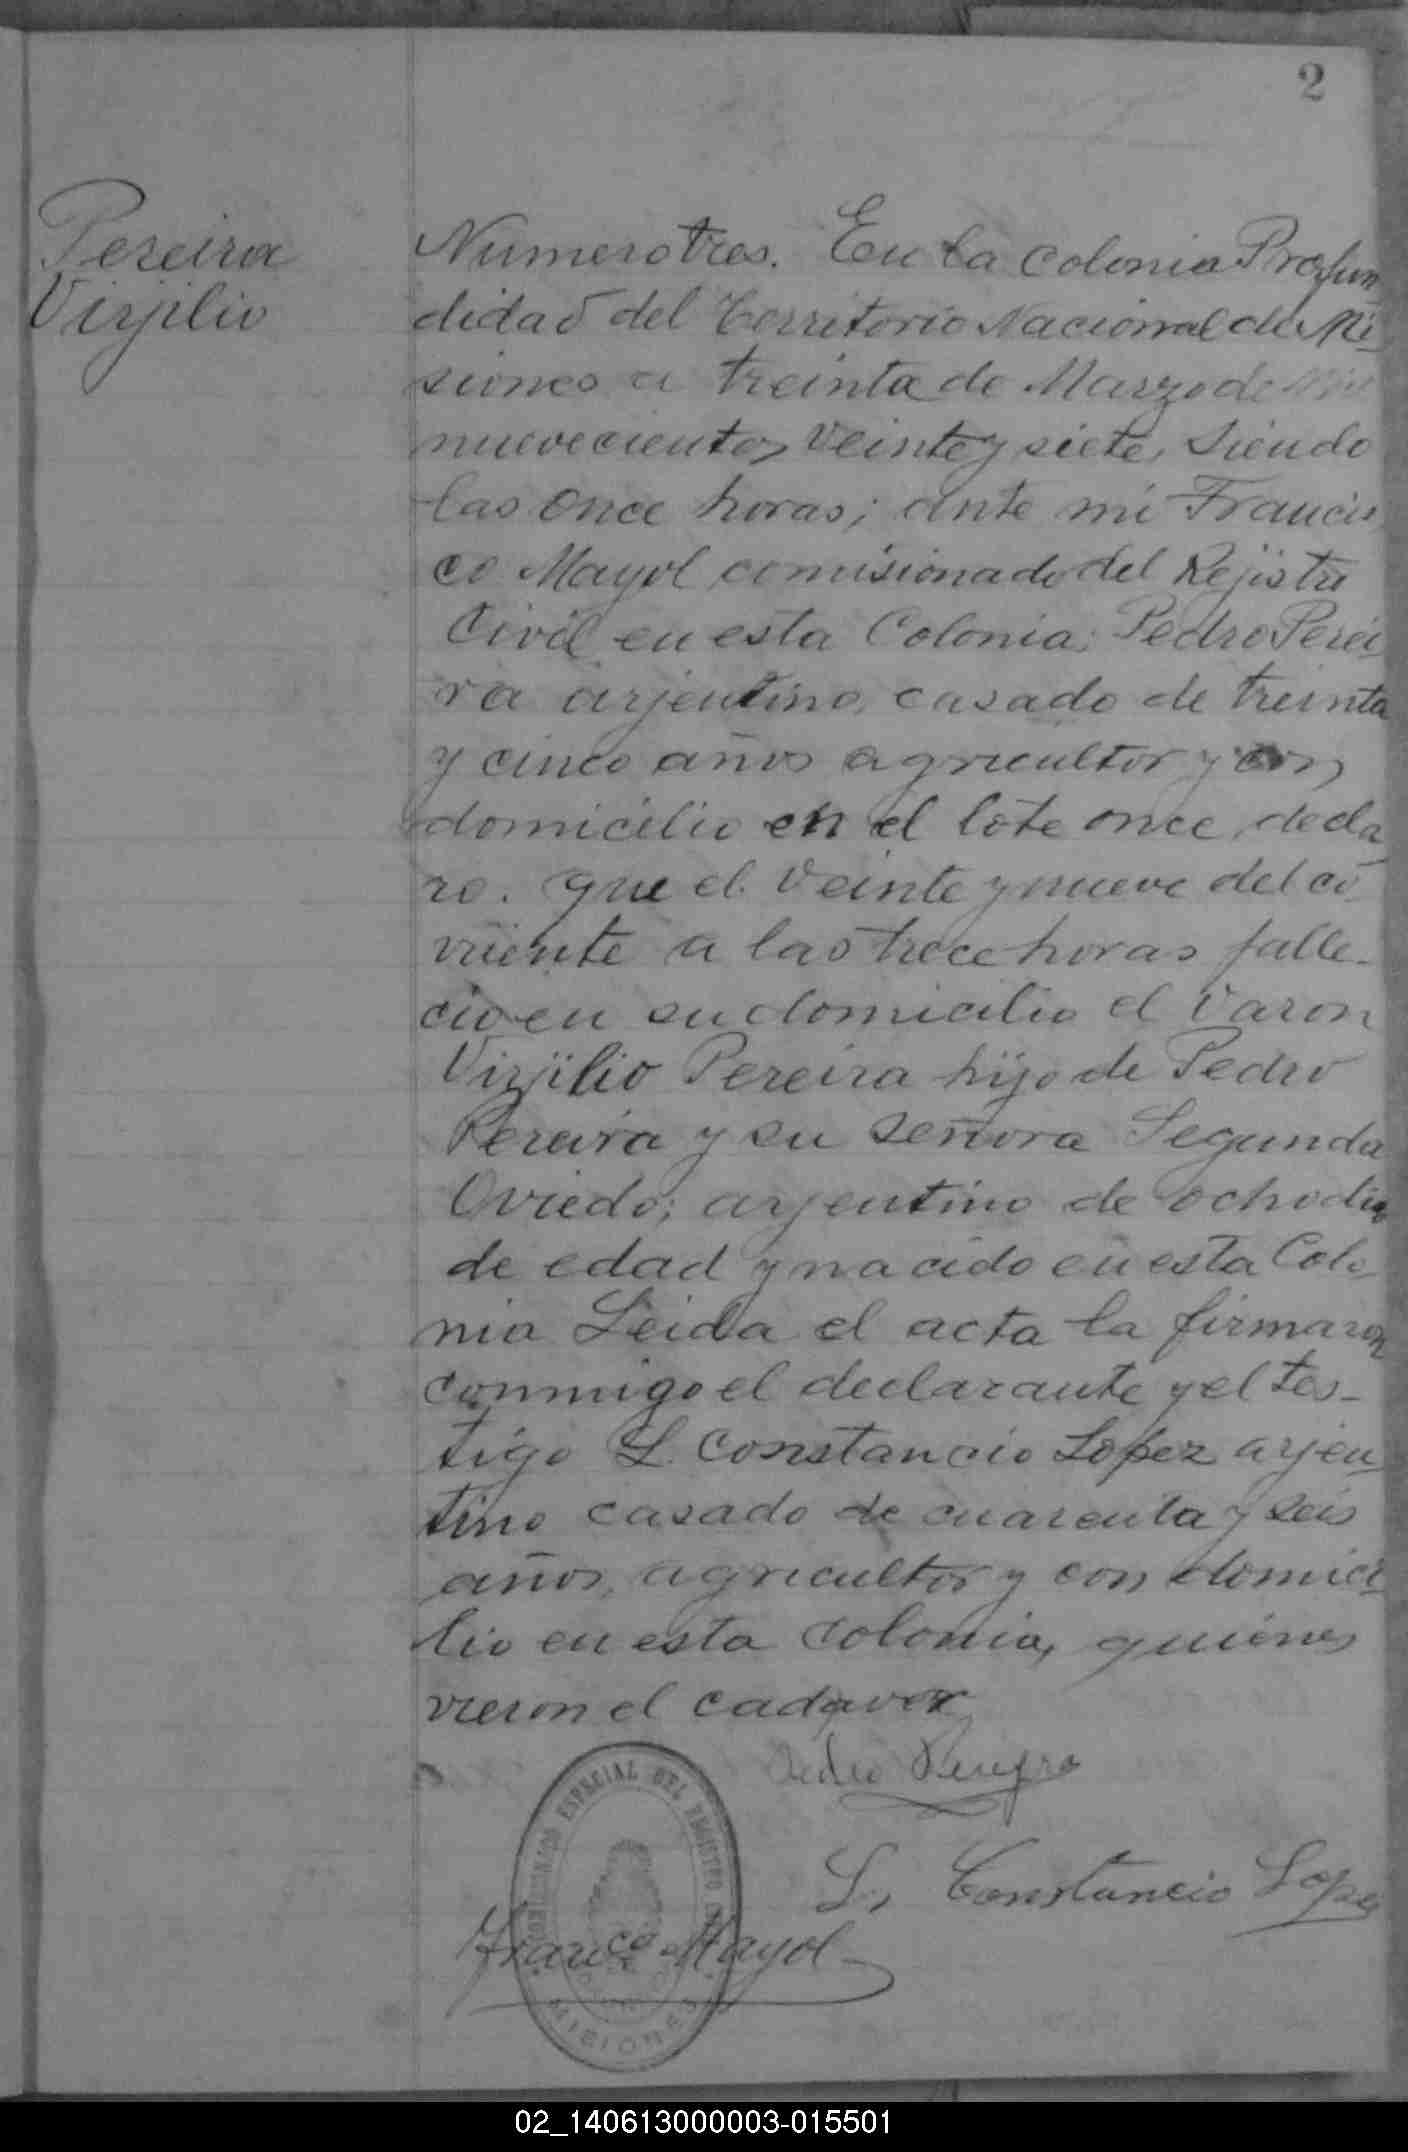 2
Pereira
Virjilio
Numero tres. En la colonia Profun
didad del Territorio Nacional de Mi-
siones a treinta de Marzo de mil
nuevecientos veinte y siete, siendo
las once horas; ante mi Francis
co Mayol comisionado del Rejistro
Civil en esta Colonia; Pedro Perei-
ra arjentino, casado de treinta
y cinco años agricultor y con
domicilio en el lote once, decla
ro. que el veinte y nueve del co-
rriente a las trece horas falle-
cio en su domicilio el varon
Virjilio Pereira hijo de Pedro
Pereira y su señora Segunda
Oviedo; arjentino de ocho dias
de edad y nacido en esta Colo-
nia Leida el acta la firmaron
conmigo el declarante y el tes-
tigo L. Constancio Lopez arjen-
tino casado de cuarenta y seis
años, agricultor y con domici-
lio en esta colonia, quienes
vieron el cadaver
Pedro
L. Constancio Lopez
Franco Mayol
COMISIONADO ESPECIAL DEL REGISTRO
MISIONES
02_140613000003-015501